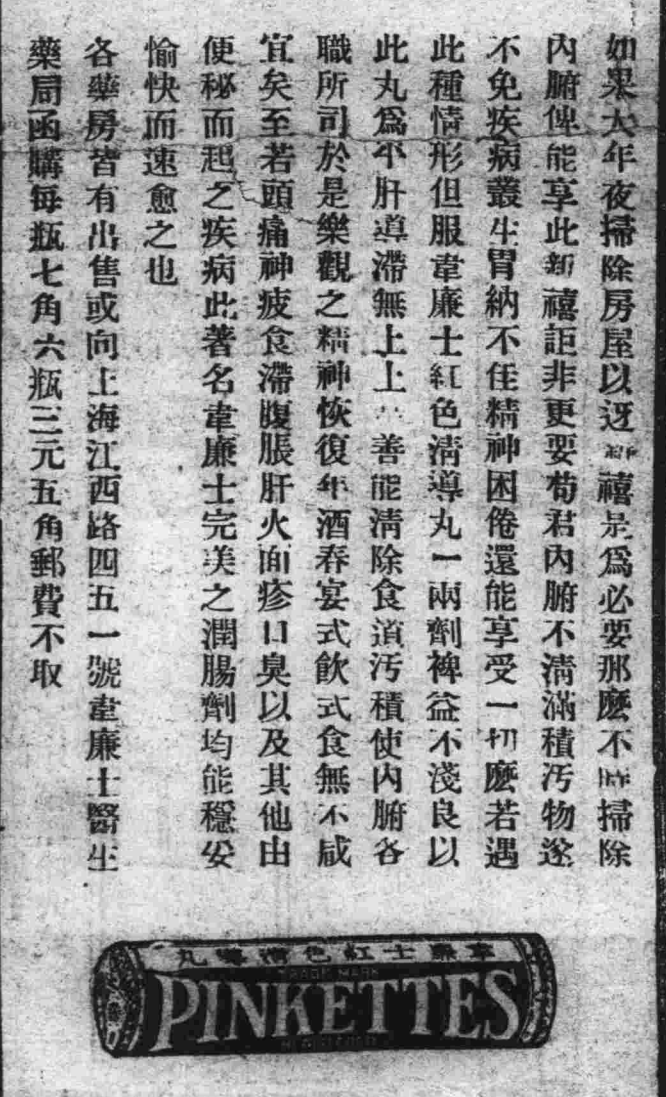 如果大年夜掃除房屋以迓新禧是爲必要那麽不時掃除
內腑俾能享此新禧詎非更要苟君內腑不清滿積汚物遂
不免疾病叢生胃納不佳精神困倦還能享受一切麽若遇
此種情形但服韋廉士紅色清導丸一兩劑裨益不淺良以
此丸爲平肝導滯無上上善能清除食道汚積使內腑各
職所司於是樂觀之精神恢復年酒春宴式飲式食無不咸
宜矣至若頭痛神疲食滯腹脹肝火面疹口臭以及其他由
便秘而起之疾病此著名韋廉士完美之潤腸劑均能穩妥
愉快而速愈之也
各藥房皆有出售或向上海江西路四五一號韋廉士醫生
藥局函購每瓶七角六瓶三元五角郵費不取
韋廉士紅色清導丸
TRADE MARK
PINKETTES
REGISTERED